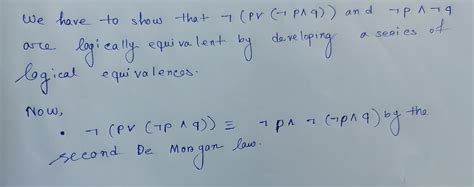 We have to show that ¬ (p∨ (¬p∧q)) and ¬p ∧ ¬q
are logically equivalent by developing a series of
logical equivalences.
Now,
• ¬ (p∨ (¬p ∧ q)) ≡ ¬p∧ ¬ (¬p∧q) by the
second De Morgan law.